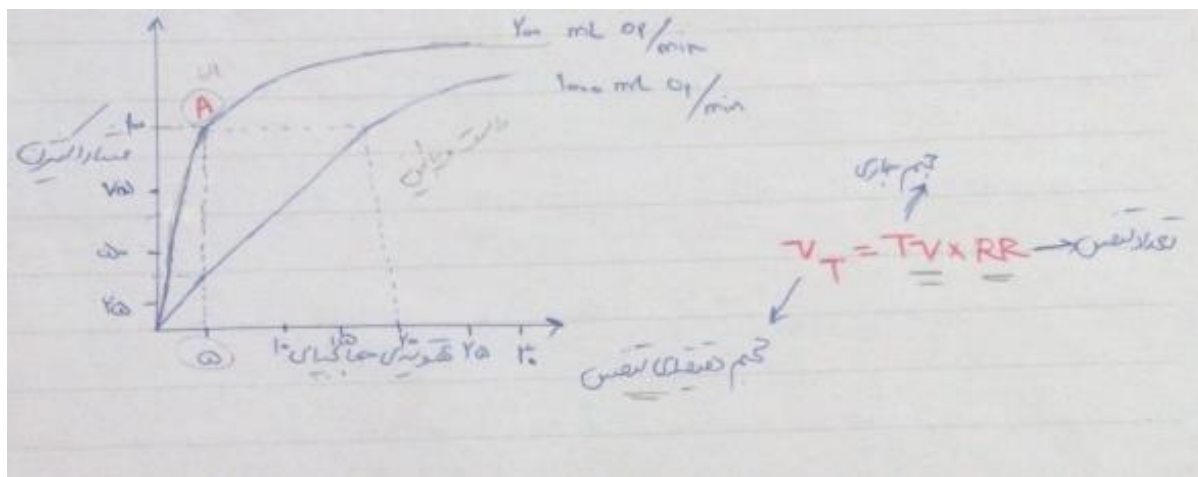 ۲۰۰ mL O۲/min
۱۰۰۰ mL O۲/min
A
۱۰۰
فشار اکسیژن
۷۵
۵۰
۲۵
۵
۱۰
۱۵
۲۰
۲۵
۳۰
تهویه‌ی حبابچه‌ای
حجم جاری
V_T = TV × RR → تعداد تنفس
حجم دقیقه‌ای تنفس